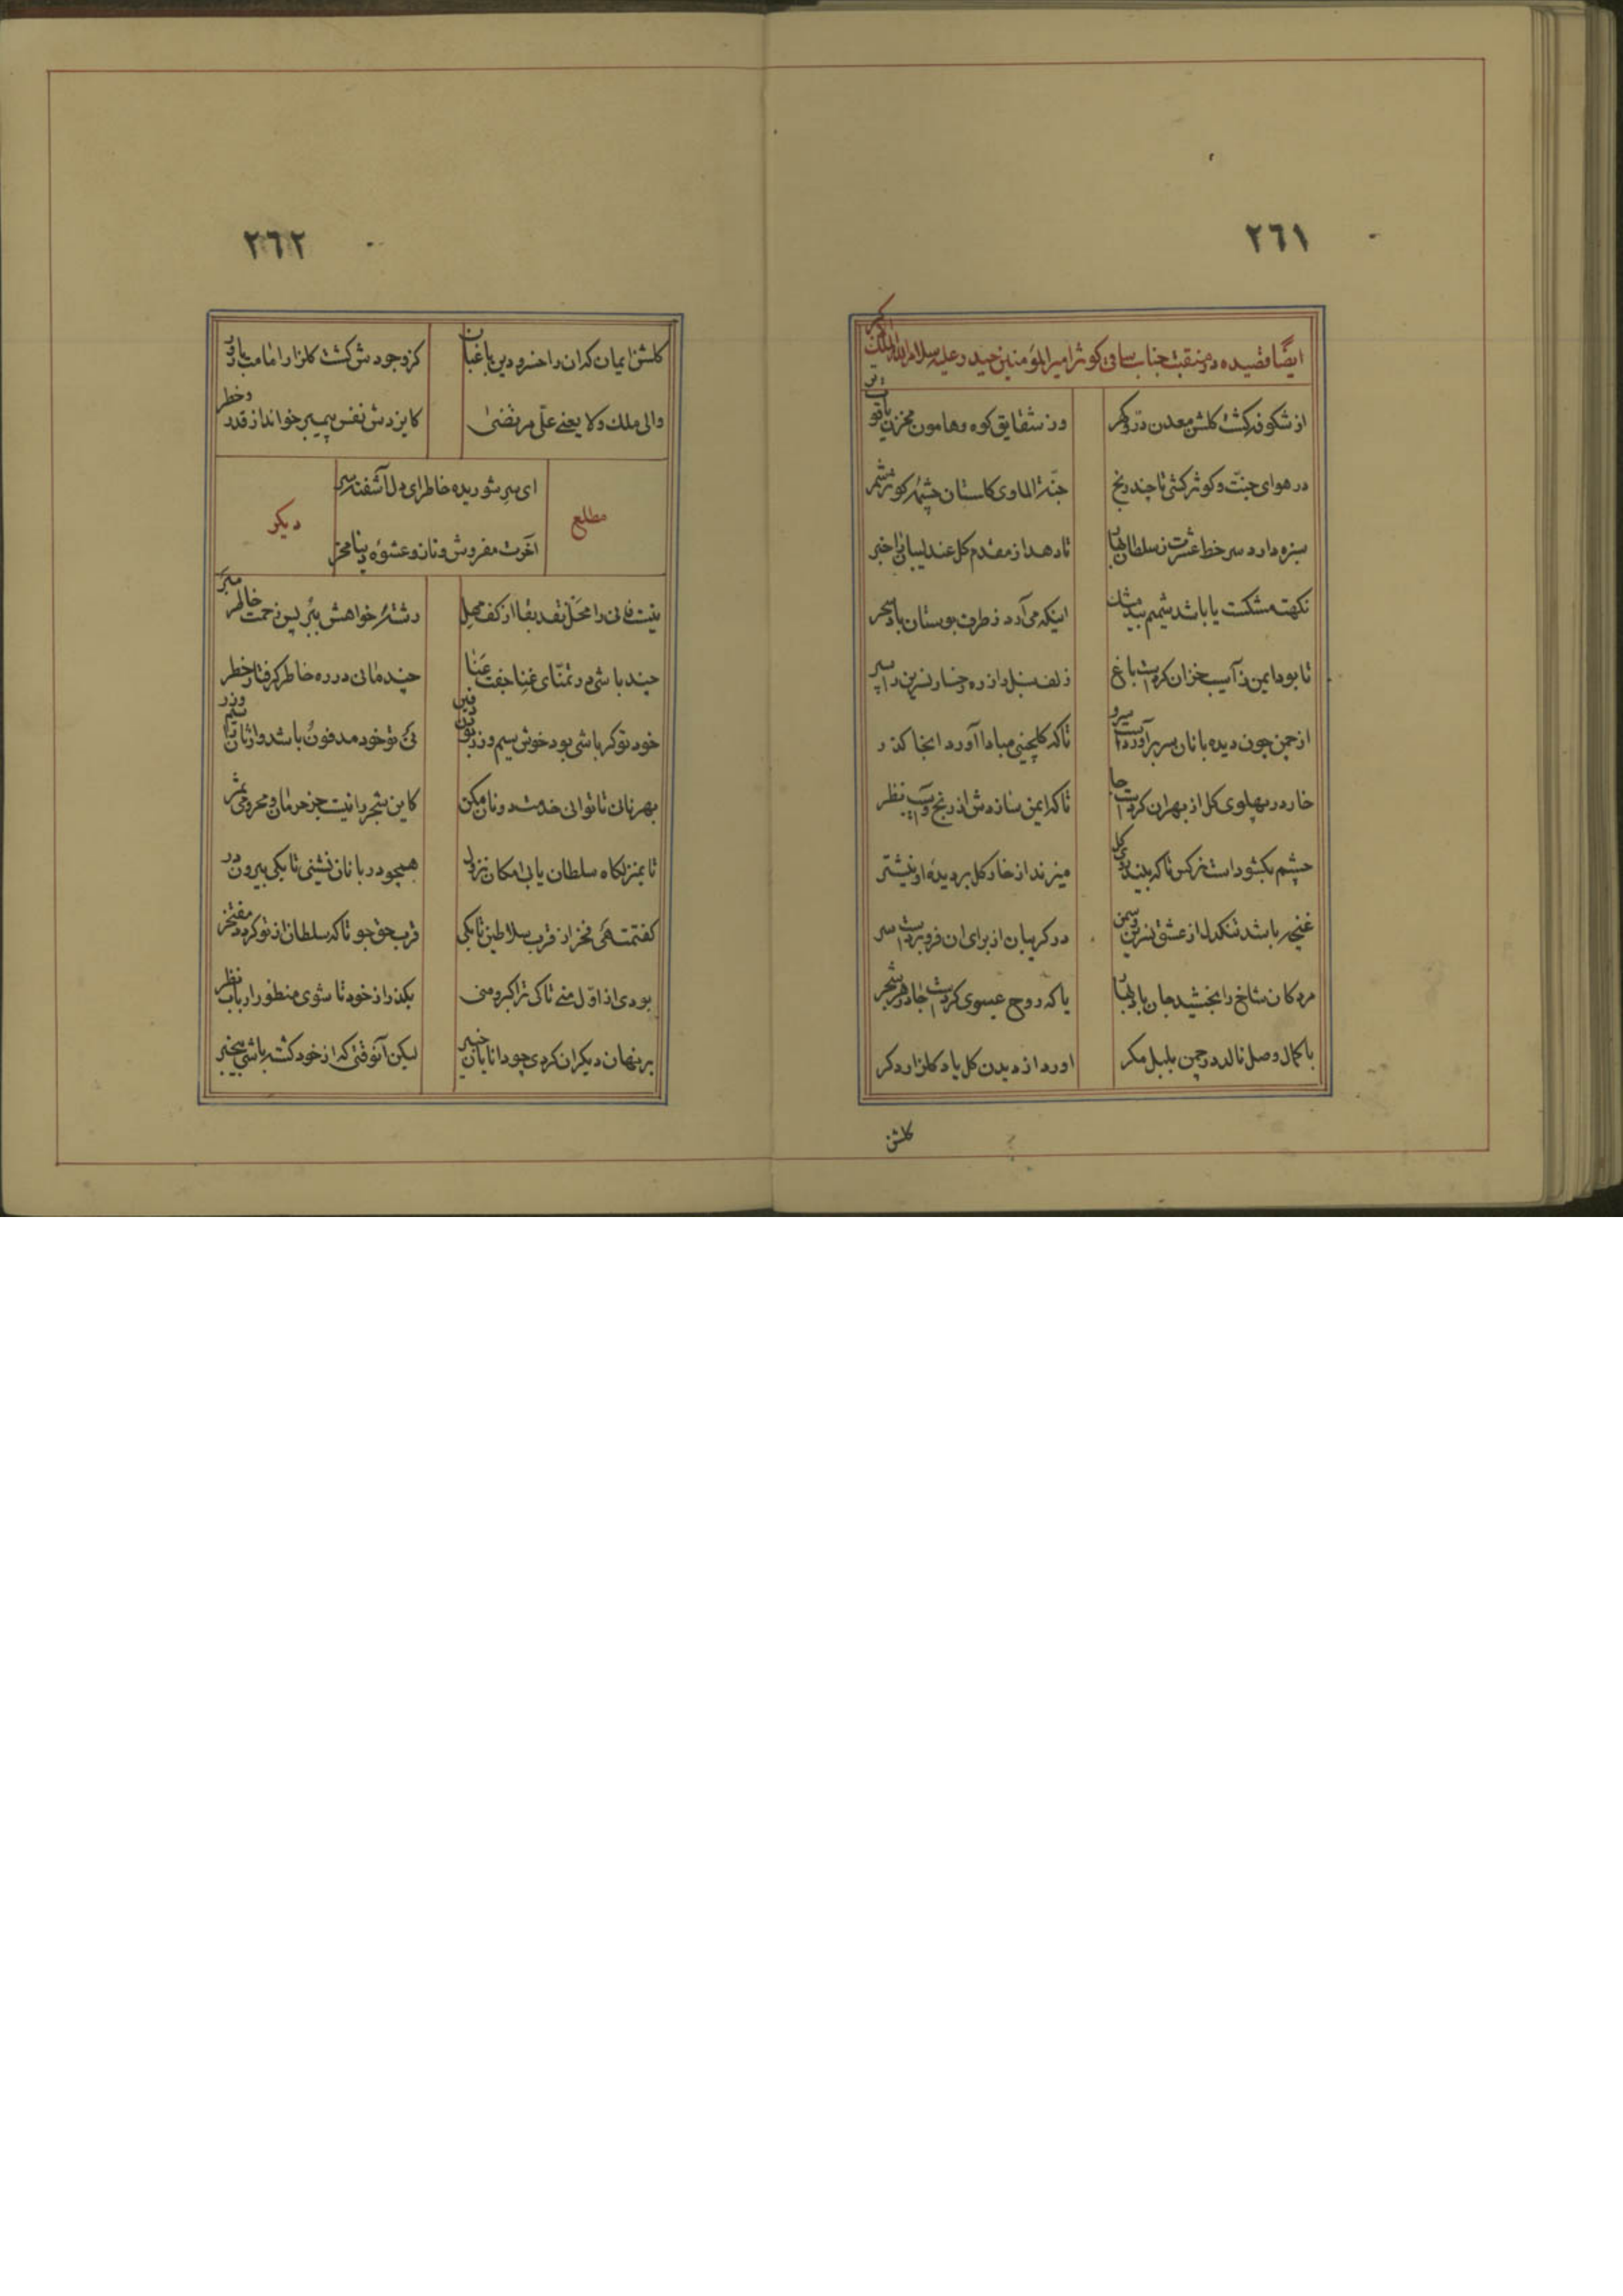 ٢٦١
ایضًا قصیده در منقبت جناب ساقی کوثر امیر المؤمنین حیدر علیه سلام الله الملک الاکبر
از شکوفه کشت کلشن معدن در و کهر
وز شقایق کوه و هامون مخزن یاقوت
در هوای جنّت و کوثر کشی تا چند رنج
جنّة الماوی کلستان چشمهٔ کوثر شمر
سبزه دارد سر خط عشرت ز سلطان بهار
تا دهد از مقدم کل عندلیبان را خبر
نکهت مشکست یا باشد شمیم بید مشک
اینکه می آرد ز طرف بوستان باد سحر
تا بود ایمن ز آسیب خزان کردست باغ
زلف سنبل را زره رخسار نسرین را سپر
از چمن چون دیده بانان سر برآوردست سرو
تا که کلچینی مبادا آورد اینجا کذر
خار در پهلوی کل از بهر ان کردست جا
تا که ایمن سازدش از رنج و آسیب نظر
چشم بکشوداست نرکس تا که بیند روی کل
میزند از خار کل بر دیدهٔ او نیشتر
غنچه باشد تنکدل از عشق نسرین و سمن
در کریبان از برای ان فرو بردست سر
مردکان شاخ را بخشید جان باد بهار
یا که روح عیسوی کردست جا در هر شجر
با کمال وصل نالد در چمن بلبل مکر
اورد از دیدن کل یاد کلزار دکر
کلشن
٢٦٢
کلشن ایمان که ان را خسرو دین باغبان
کز وجودش کشت کلزار امامت بارور
والی ملک ولا یعنی علّی مرتضیٰ
کایزدش نفس پیمبر خواند از قدر و خطر
مطلع
ای سر شوریده خاطر ای دل آشفته سر
آخرت مفروش و ناز و عشوهٔ دنیا مخر
دیکر
نیست فانی را محل نقد بقا از کف مهل
رشتهٔ خواهش ببر پس زحمت خاطر مبر
چند باشی در تمنّای غنا جفت عَنا
چند مانی در ره خاطر کرفتار خطر
خود تو کر باشی بود خوش سیم و زر بود دفین
نی تو خود مدفون باشد وارثان را سیم و زر
بهر نانی تا توانی خدمت دونان مکن
کاین شجر را نیست جز حرمان و محرومی ثمر
تا بمنزلکاه سلطان یابی امکان نزول
همچو دربانان نشینی تا بکی بیرون در
کفتمت هی فخر از قرب سلاطین تا بکی
قرب حق جو تا که سلطان از تو کردد مفتخر
بودی از اوّل منی تا کی ترا کبر و منی
بکذر از خود تا شوی منظور ارباب نظر
بر نهان دیکران کردی چو دانایان خبیر
لیکن آنوقتی که از خود کشته باشی بیخبر